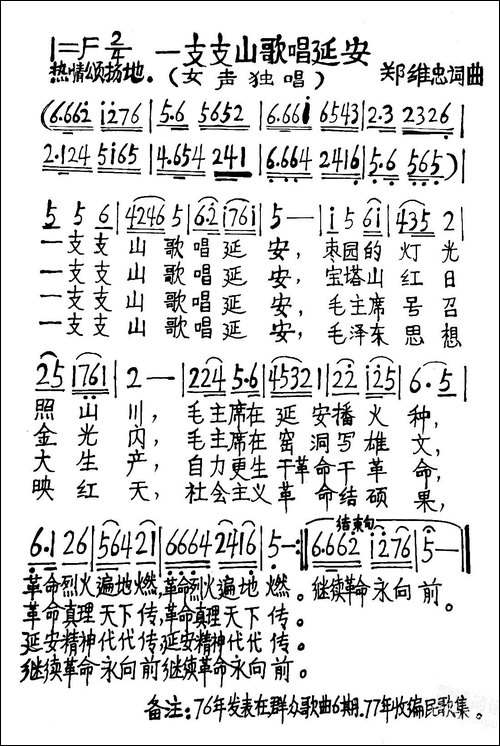 1=F 2/4 一支支山歌唱延安
热情颂扬地. (女声独唱) 郑维忠词曲
(6.662 1276 | 5.6 5652 | 6.661 6543 | 2.3 2326 |
2.124 5165 | 4.654 241 | 6.664 2416 | 5.6 565) |
5 5 6 | 4246 5 | 6.2 1761 | 5 — | 1 5 61 | 435 2 |
一支支山歌唱延安,枣园的灯光
一支支山歌唱延安,宝塔山红日
一支支山歌唱延安,毛主席号召
一支支山歌唱延安,毛泽东思想
25 1761 | 2 — | 224 5.6 | 45321 | 22 125 | 6.5 |
照山川,毛主席在延安播火种,
金光闪,毛主席在窑洞写雄文,
大生产,自力更生干革命干革命,
映红天,社会主义革命结硕果,
结束句
6.1 26 | 56421 | 6664 2416 | 5 - :‖ 6.662 1276 | 5 — ‖
革命烈火遍地燃,革命烈火遍地燃。继续革命永向前。
革命真理天下传,革命真理天下传。
延安精神代代传,延安精神代代传。
继续革命永向前继续革命永向前。
备注:76年发表在群众歌曲6期.77年收编民歌集。